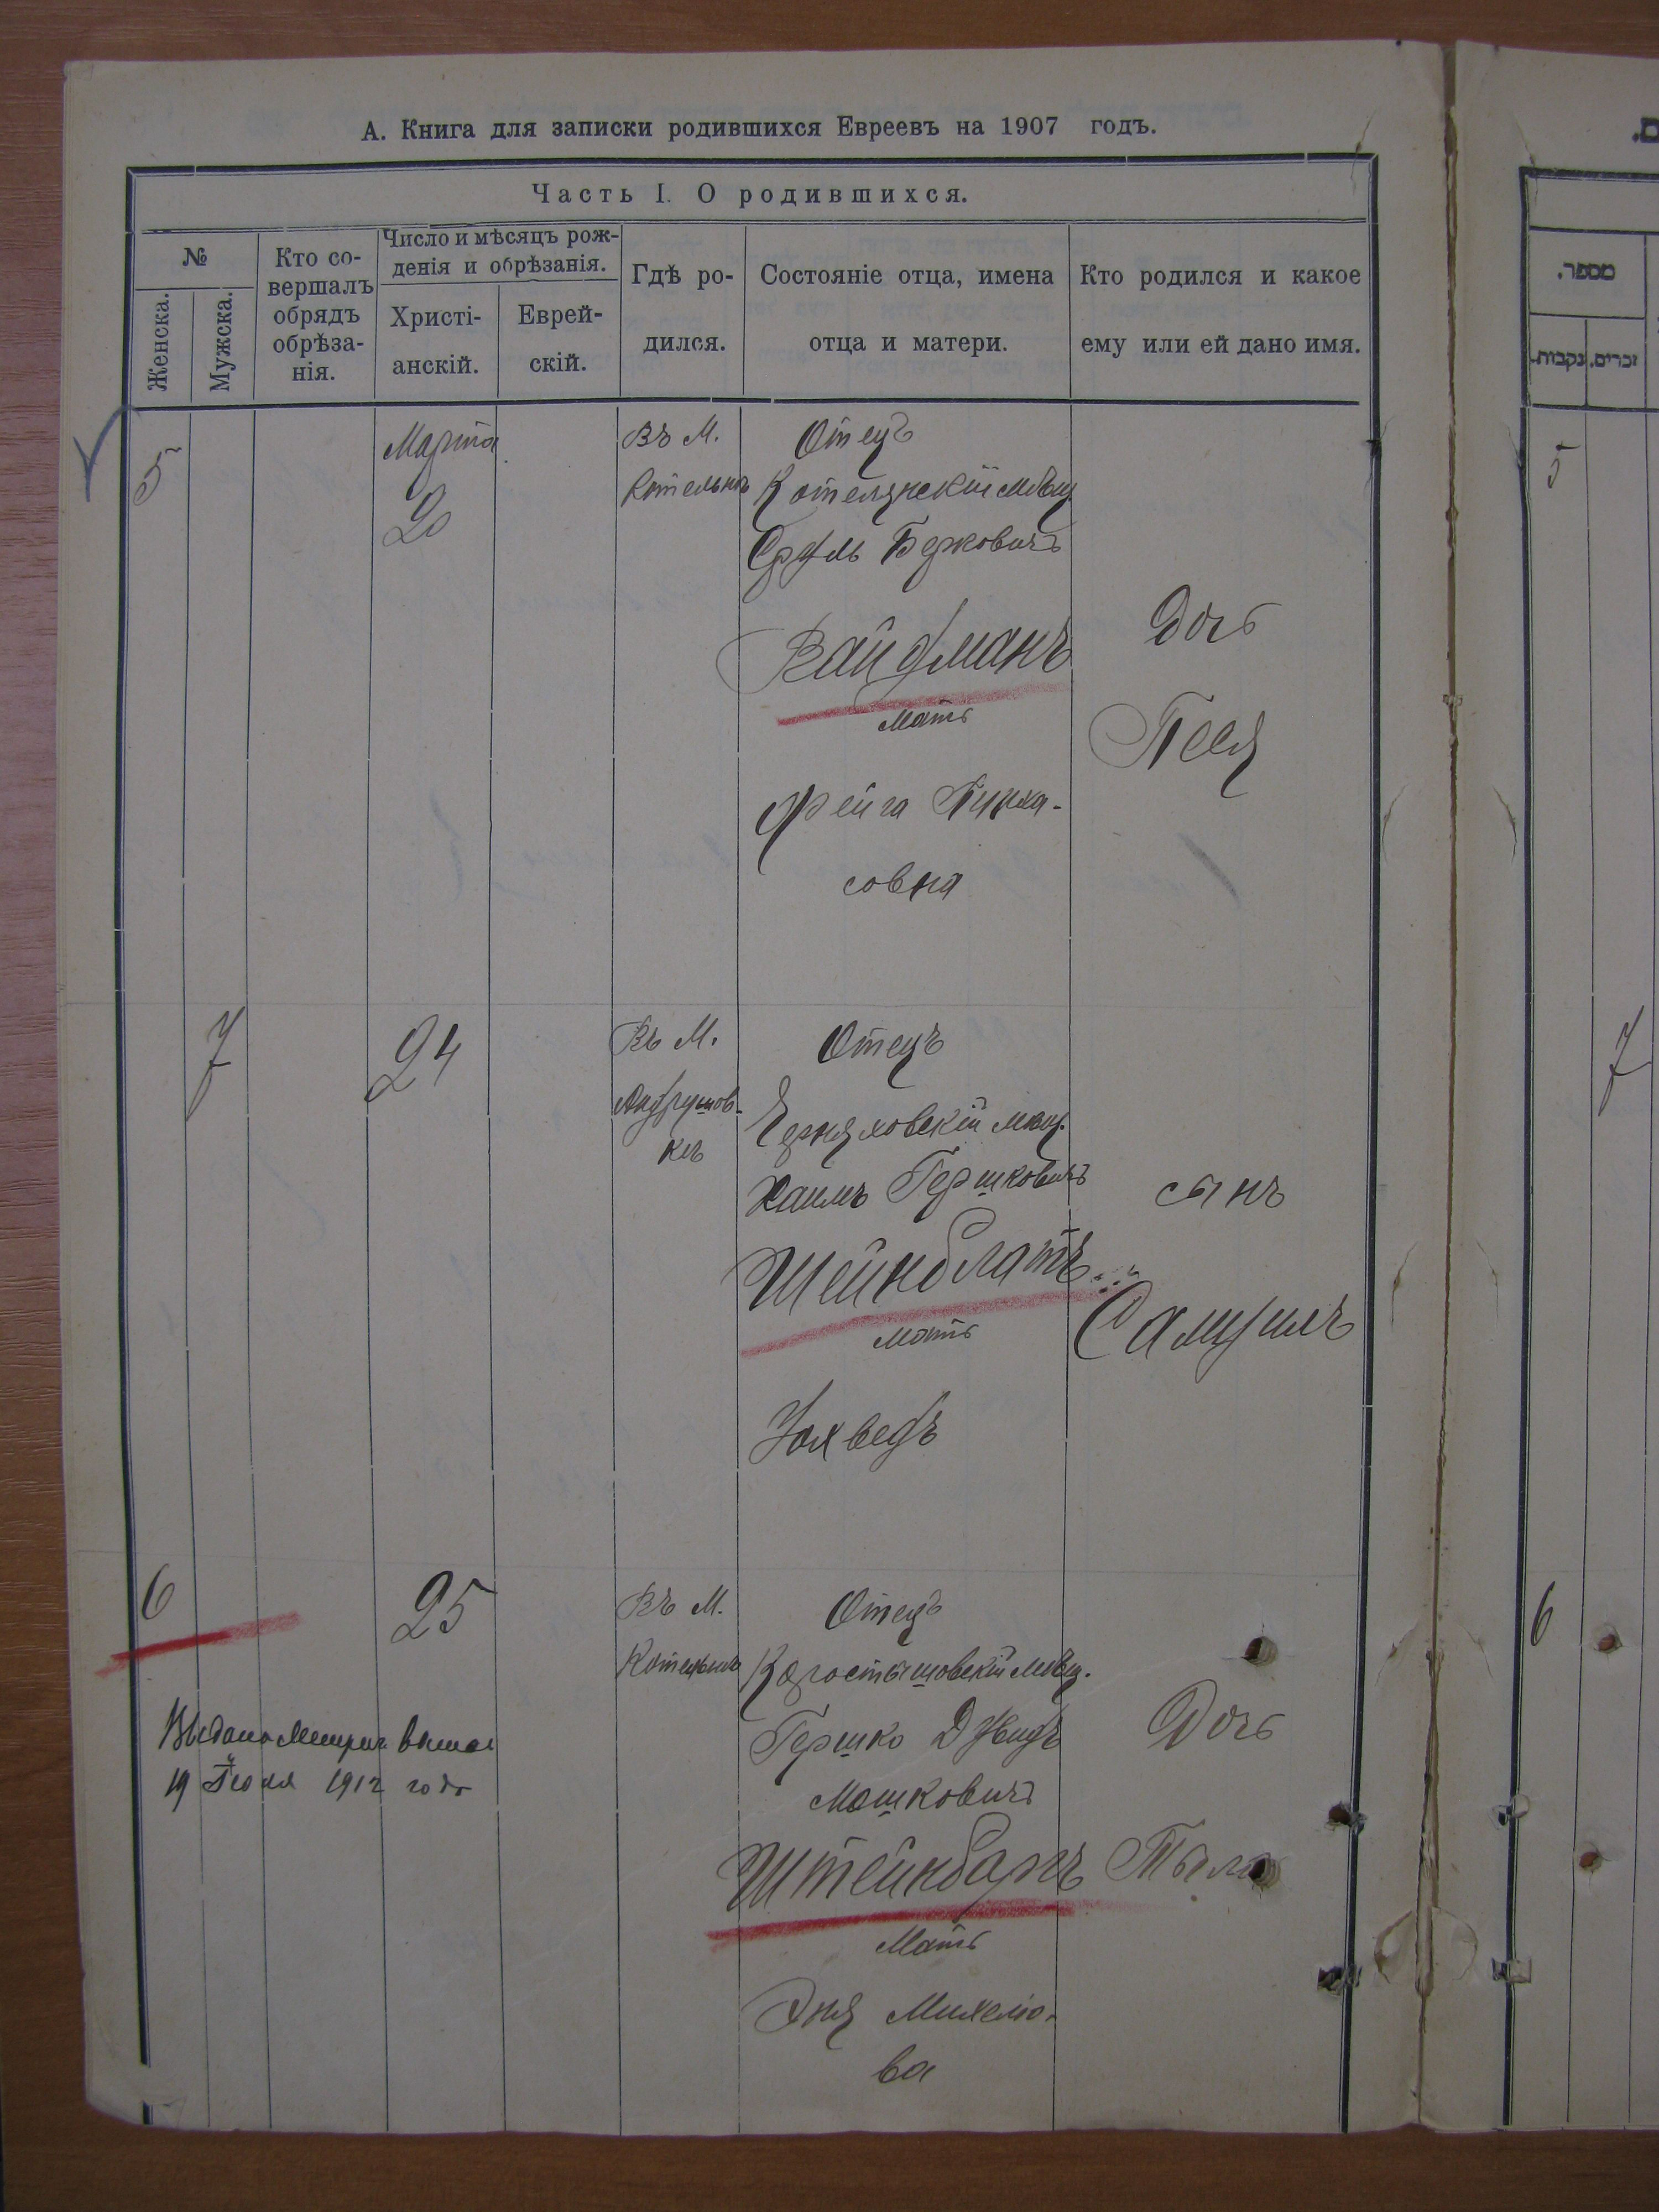 А. Книга для записки родившихся Евреевъ на 1907 годъ.
Часть I. О родившихся.
№
Женска.
Мужска.
Кто со-
вершалъ
обрядъ
обрѣза-
нія.
Число и мѣсяцъ рож-
денія и обрѣзанія.
Христі-
анскій.
Еврей-
скій.
Гдѣ ро-
дился.
Состояніе отца, имена
отца и матери.
Кто родился и какое
ему или ей дано имя.
5
Марта
20
Въ М.
Котельнѣ
Отецъ
Котелянскій мѣщ.
Сруль Берковичъ
Вайдманъ
Мать
Фейга Пинха-
совна
Дочь
Песя
7
24
Въ М.
Андрушов-
кѣ
Отецъ
Черняховскій мѣщ.
Хаимъ Гершковичъ
Шейнблатъ
Мать
Йохведъ
сынъ
Самуилъ
6
25
Въ М.
Котельнѣ
Отецъ
Коростышовскій мѣщ.
Гершко Дувидъ
Мошковичъ
Штейнбаргъ
Мать
Эня Михелю-
ва
Дочь
Выдано Метрич
19 Іюля 1912 года
מספר.
נקבות.
זכרים.
5
7
6